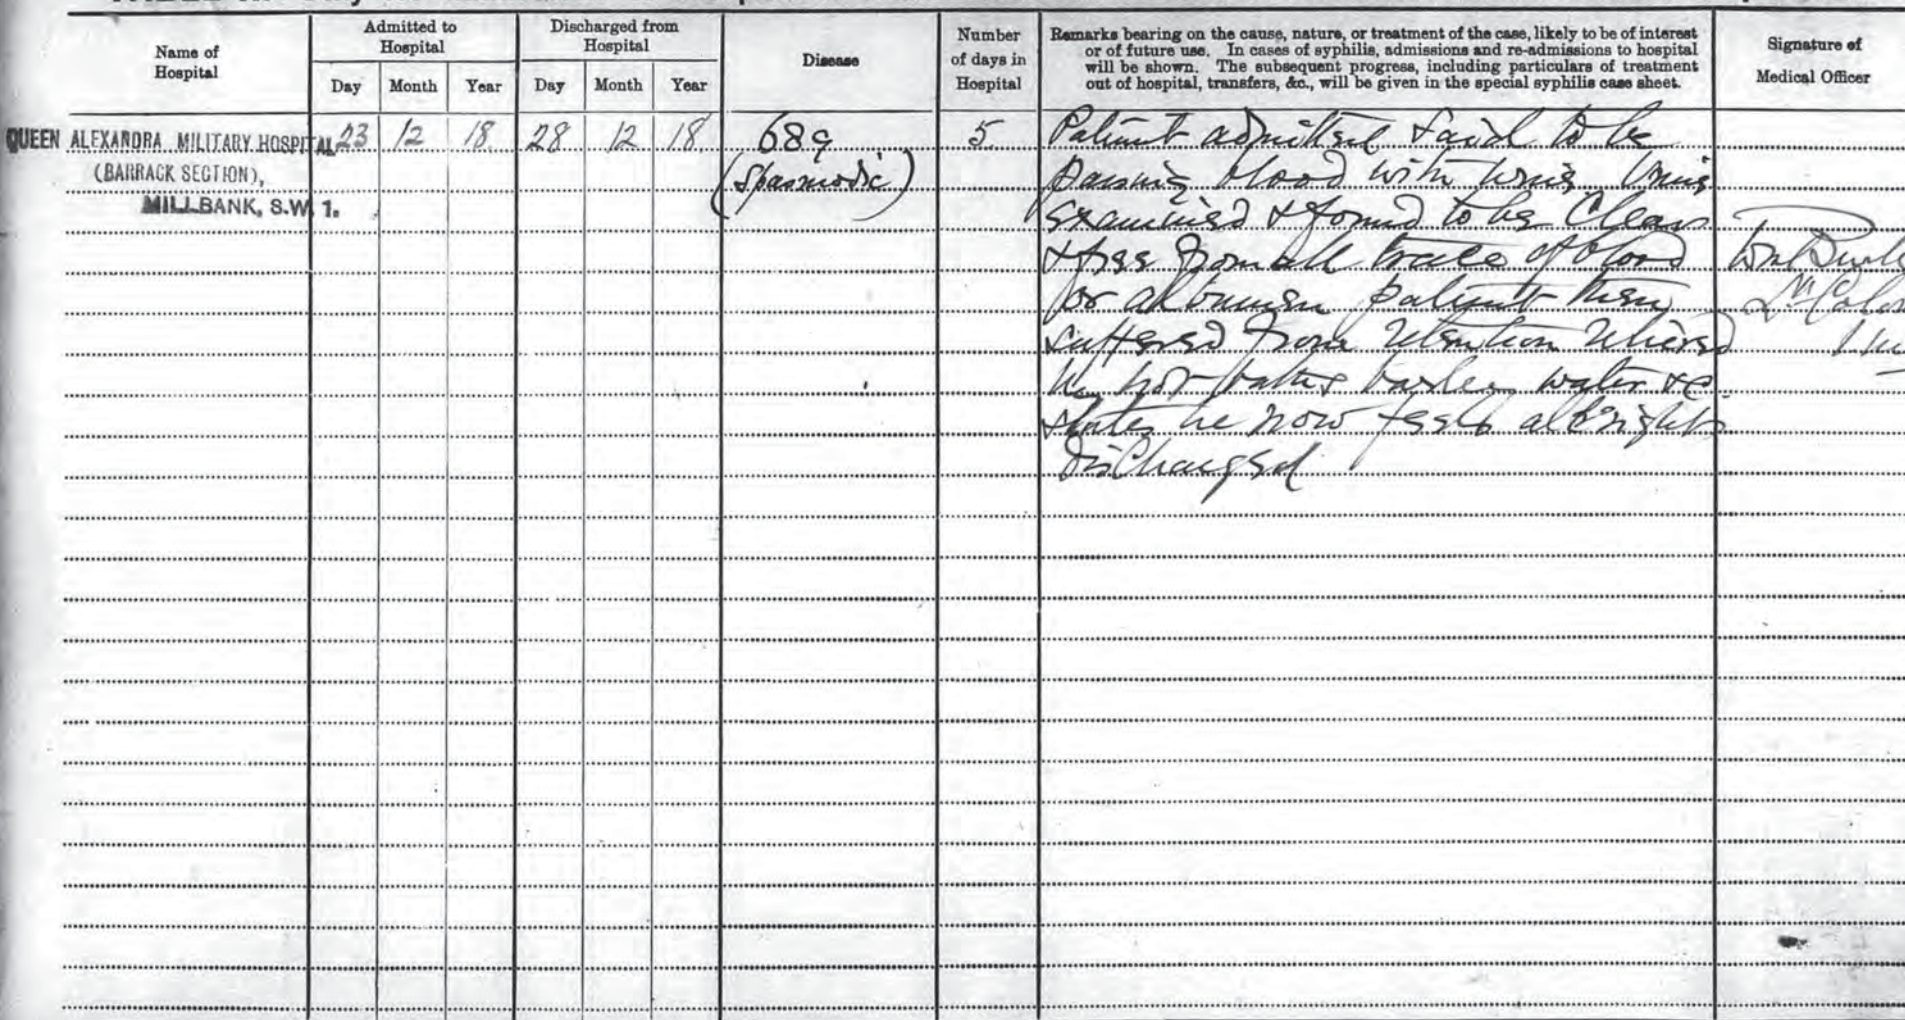 Name of Hospital
Admitted to Hospital
Day Month Year
Discharged from Hospital
Day Month Year
Disease
Number of days in Hospital
Remarks bearing on the cause, nature, or treatment of the case, likely to be of interest
or of future use. In cases of syphilis, admissions and re-admissions to hospital
will be shown. The subsequent progress, including particulars of treatment
out of hospital, transfers, &c., will be given in the special syphilis case sheet.
Signature of
Medical Officer
QUEEN ALEXANDRA MILITARY HOSPITAL
(BARRACK SECTION),
MILLBANK, S.W. 1.
23 12 18 28 12 18
689
(Spasmodic)
5
Patient admitted & said to be
passing blood with urine Urine
examined & found to be Clear
& free from all trace of blood
or albumen patient then
suffered from retention relieved
by hot baths barley water &c
states he now feels alright
Discharged